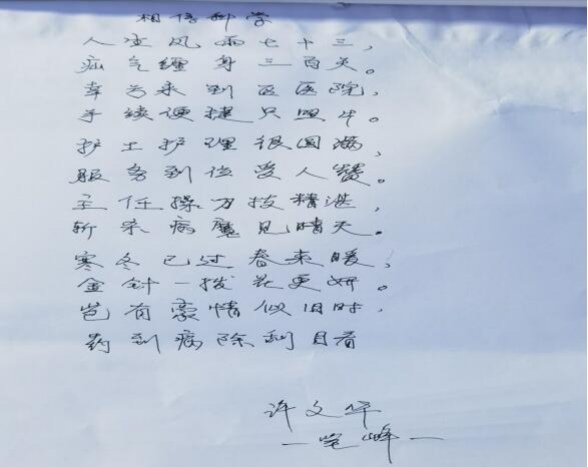 相信科学
人生风雨七十三，
疝气缠身三百天。
幸兮来到区医院，
手续便捷只照牛。
护士护理很圆满，
服务到位受人赞。
主任操刀技精湛，
斩杀病魔见晴天。
寒冬已过春来暖，
金针一拨花更妍。
岂有豪情似旧时，
药到病除刮目看
许文华